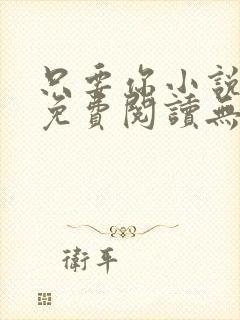 只要你小說
免費閱讀無
衛平